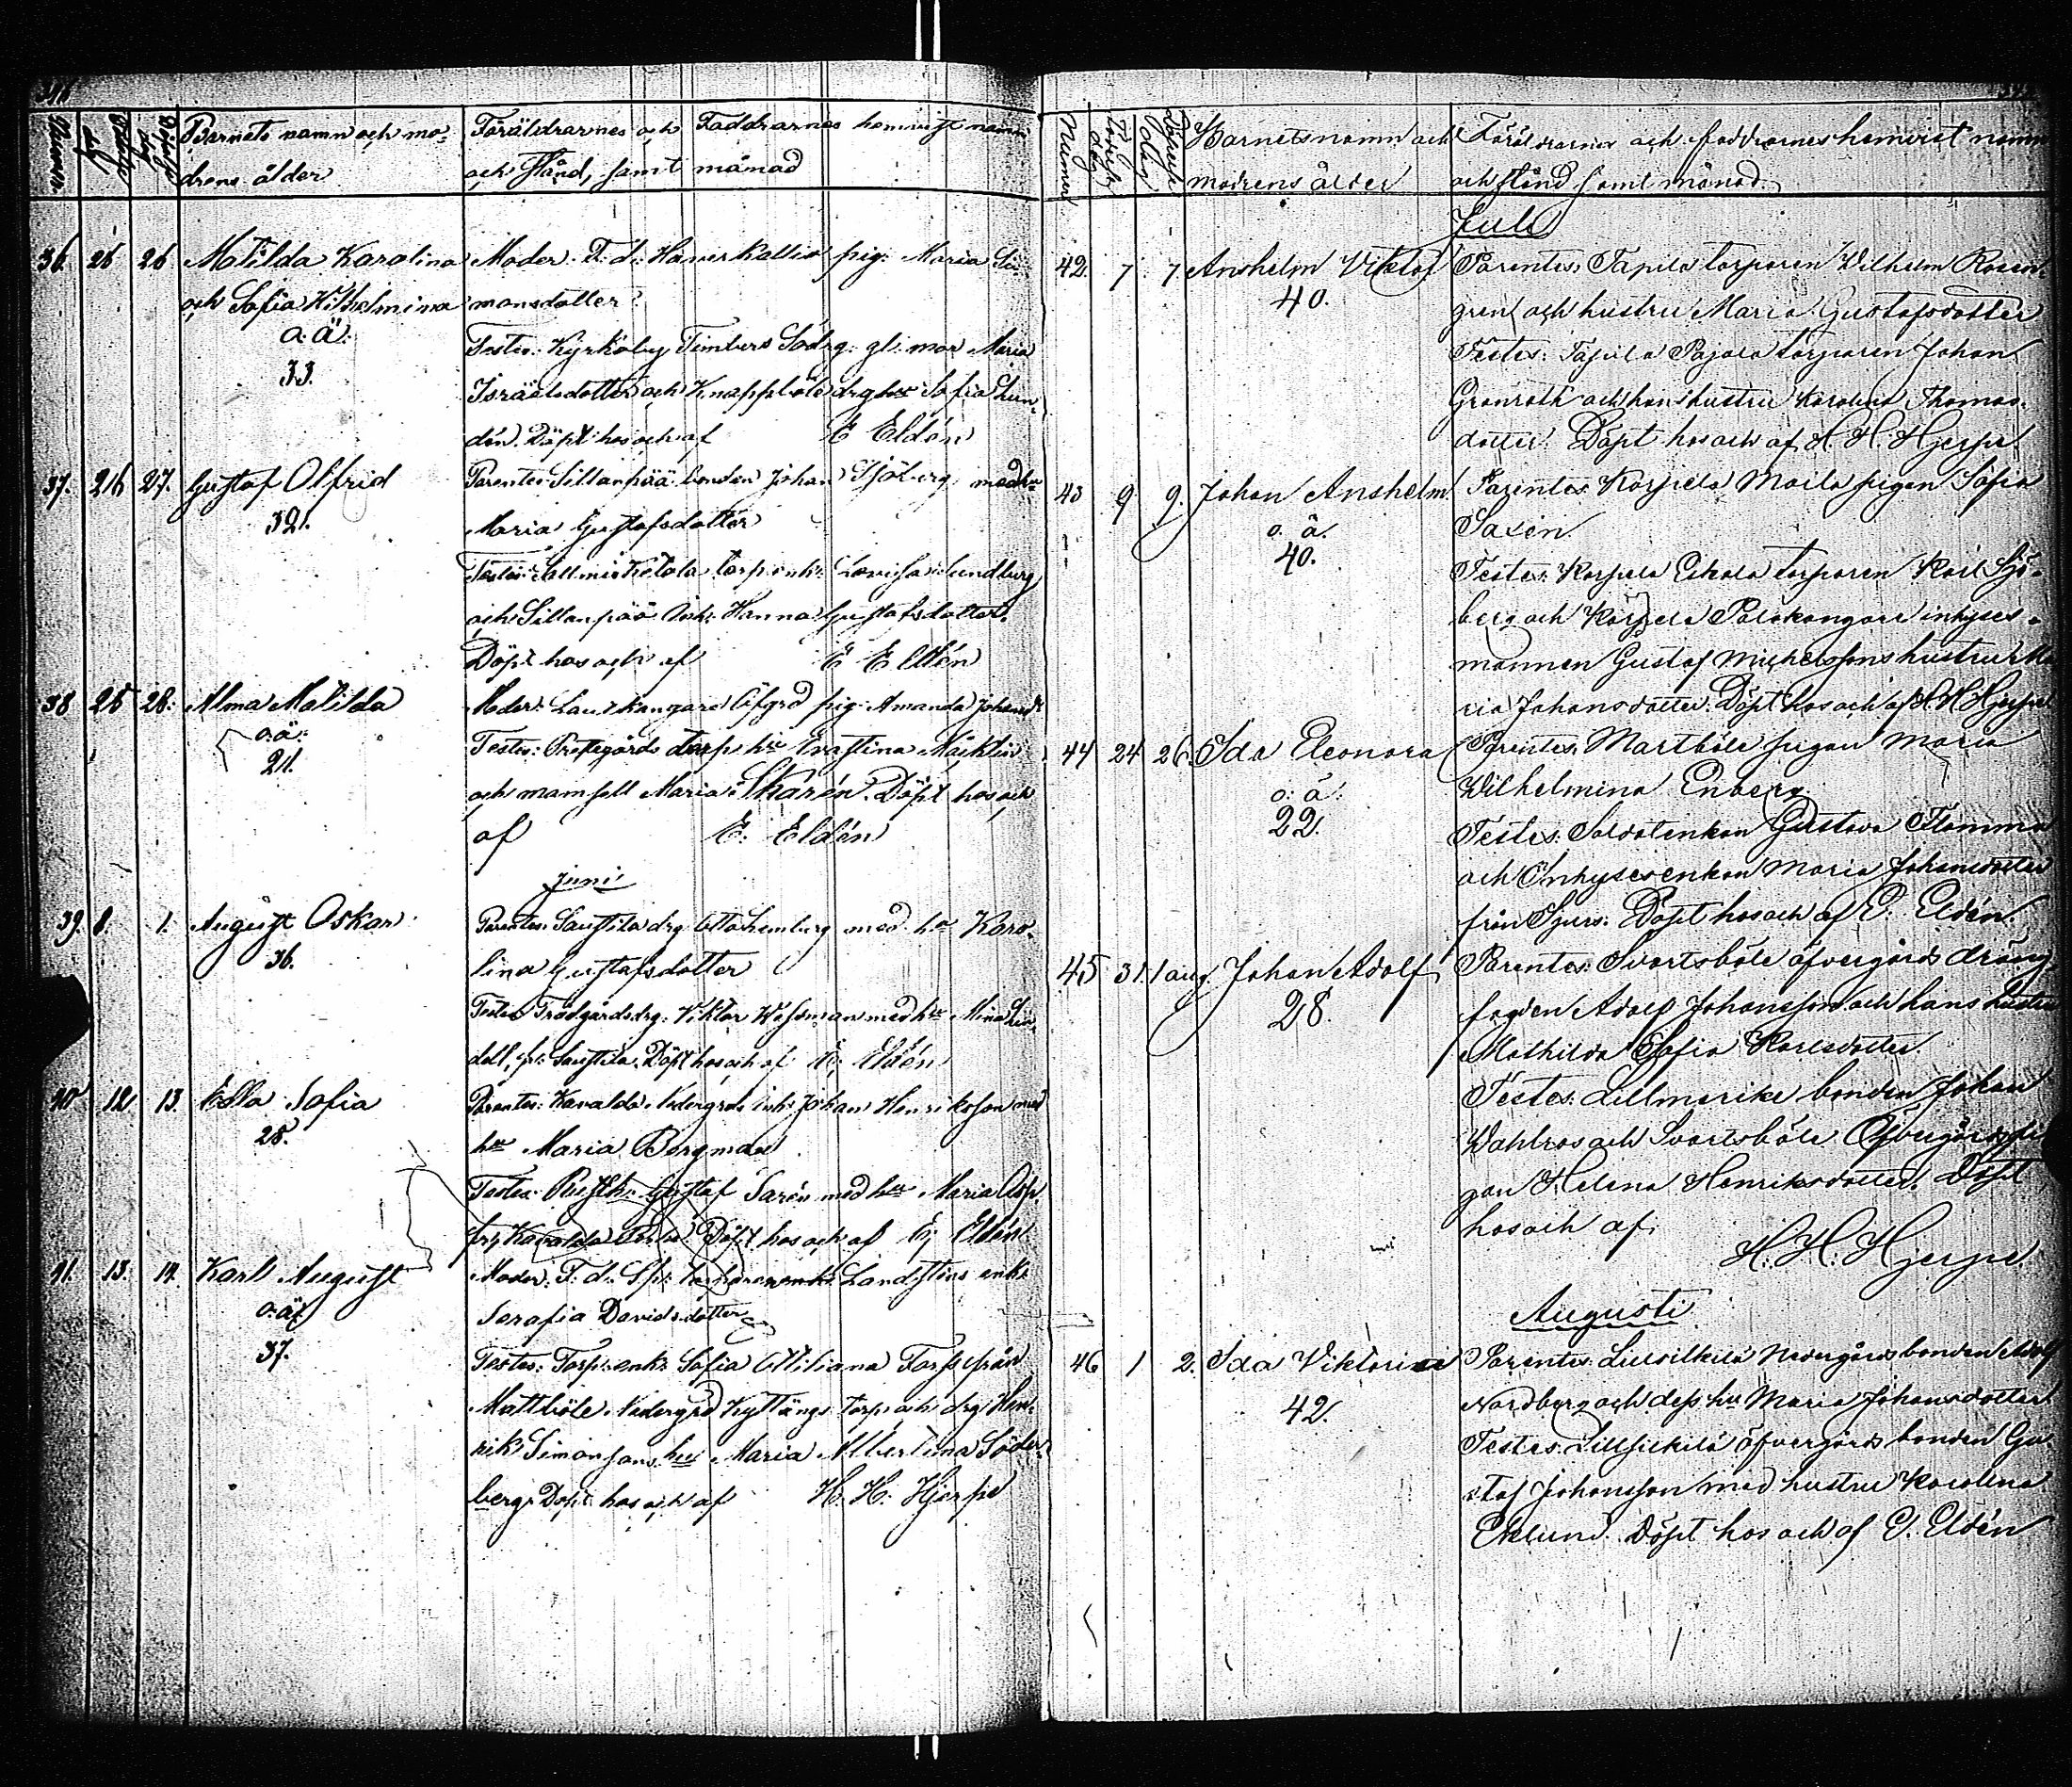 Numer
Födelse dag
Döpelse dag
Barnets namn och mo-
drens ålder
Föräldrarnes och Faddrarnes hemvist namn
och stånd, samt månad
36. 25 26 Matilda Karolina
och Sofia Vilhelmina
o: ä:
33.
Moder: T. d. Haverkallio pig: Maria Si-
monsdotter
Testes: Kyrkoby Timbers Södrg: gl: mor Maria
Israelsdotter och Knappböle drg hu Sofia Lun-
dén. Döpt hos och af E Eldén
37. 26 27. Gustaf Olfrid
32.
Parentes: Sillanpää bonden Johan Sjöberg med hu
Maria Gustafsdotter
Testes: Ketola torp enk: Lovisa Lundberg
och Sillanpää Inh: Hanna Gustafsdotter.
Döpt hos och af E Eldén
38 25 28: Alma Matilda
o: ä:
21.
Moder: Lautkangare Öfgrd pig: Amanda Johansd:r
Testes: Prestegårds torp hu Eva Stina Mäcklin
och mamsell Maria Skarén. Döpt hos och
af E. Eldén
Juni
39. 8. 1. August Oskar
36.
Parentes: Saustila drg Otto Lemberg med hu Karo-
lina Gustafsdotter
Testes Trädgårdsdrg: Viktor Wessman med hu Mina Lin-
dell, fr: Saustila. Döpt hos och af E. Eldén
40 12 13. Ella Sofia
28.
Parentes: Kavalda Nedergrds Inh: Johan Henriksson med
hu Maria Bergman
Testes: Rusth: Gustaf Sarén med hu Maria
fr: Kavalda Döpt hos och af E; Eldén
41. 13. 14. Karl August
o: ä:
37.
Moder: T. d. torparenenk: Landstens enka
Serafia Davidsdotter
Testes: Torp: enk: Sofia Ottiliana Fors från
Mattböle Nedergrd Kyttängs torp och drg Hen-
rik Simonssons hu Maria Albertina Söder-
berg. Döpt hos och af H. H. Hjerpe
Numer
Födelse dag
Döpelse dagen
Barnets namn och
modrens ålder
Föräldrarnes och faddrarnes hemvist namn
och stånd samt månad
Juli
42. 7 7 Anshelm Viktor
40.
Parentes: Tapila torparen Vilhelm Rosen-
gren och hustru Maria Gustafsdotter
Testes: Tapila Pajala torparen Johan
Granroth och hans hustru Karolina Thomas-
dotter. Döpt hos och af H. H. Hjerpe
43 9 9. Johan Anshelm
o. ä.
40.
Parentes: Korpela Maila pigan Sofia
Saxén
Testes: Korpela Eskola torparen Karl Sjö-
berg och Korpela Palokangare inhyses-
mannen Gustaf Michelssons hustru Ma
ria Johansdotter. Döpt hos och af H. H. Hjerpe
44 24 26. Ida Eleonora
o: ä:
22.
Parentes: Martböle pigan Maria
Wilhelmina Enberg
Testes: Soldatenkan Gustava Flamma
och Inhysesenkan Maria Johansdotter
från Spurs. Döpt hos och af E. Eldén.
45 31. 1 aug. Johan Adolf
28.
Parentes: Svartsböle öfvergårds dräng
fogden Adolf Johansson och hans hustru
Mathilda Sofia Karlsdotter.
Testes: Lillmerike bonden Johan
Wahlros och Svartsböle Öfvergårds pi
gan Helena Henriksdotter. Döpt
hos och af.
H. H. Hjerpe.
Augusti
46 1 2. Ida Viktoria
42.
Parentes: Lillsilkilä Nedergårds bonden Adolf
Nordberg och dess hu Maria Johansdotter
Testes: Lillsilkilä öfvergårds bonden Gu-
staf Johansson med hustru Karolina
Eklund. Döpt hos och af E. Eldén